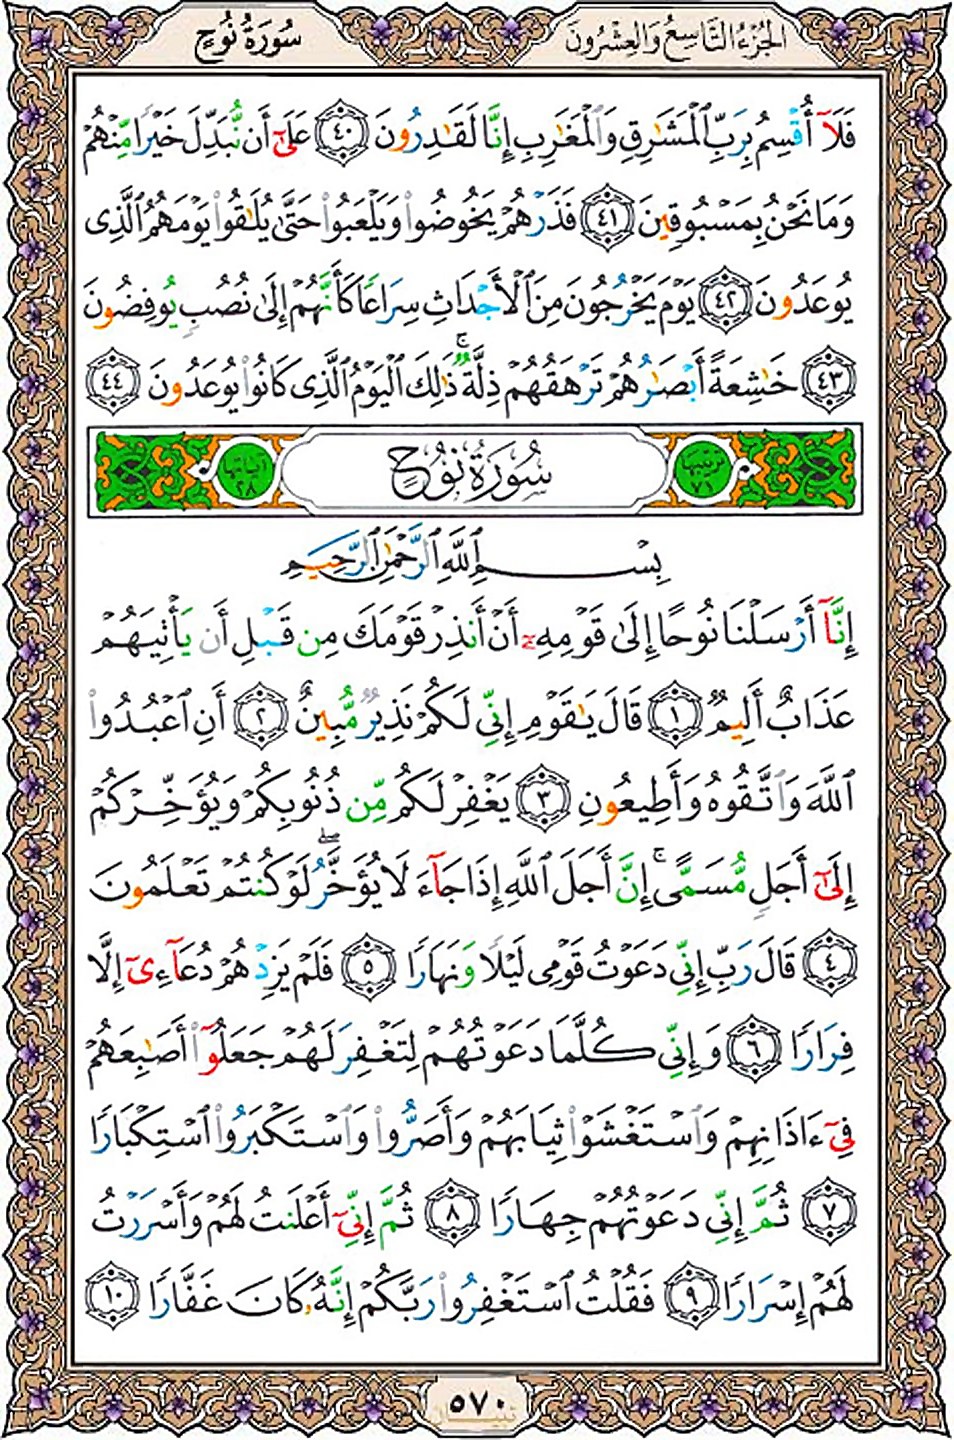 الجُزْءُ التَّاسِعُ وَالعِشْرُونَ
سُورَةُ نُوحٍ
فَلَآ أُقْسِمُ بِرَبِّ ٱلْمَشَٰرِقِ وَٱلْمَغَٰرِبِ إِنَّا لَقَٰدِرُونَ ٤٠ عَلَىٰٓ أَن نُّبَدِّلَ خَيْرًا مِّنْهُمْ
وَمَا نَحْنُ بِمَسْبُوقِينَ ٤١ فَذَرْهُمْ يَخُوضُوا۟ وَيَلْعَبُوا۟ حَتَّىٰ يُلَٰقُوا۟ يَوْمَهُمُ ٱلَّذِى
يُوعَدُونَ ٤٢ يَوْمَ يَخْرُجُونَ مِنَ ٱلْأَجْدَاثِ سِرَاعًا كَأَنَّهُمْ إِلَىٰ نُصُبٍ يُوفِضُونَ
٤٣ خَٰشِعَةً أَبْصَٰرُهُمْ تَرْهَقُهُمْ ذِلَّةٌ ۚ ذَٰلِكَ ٱلْيَوْمُ ٱلَّذِى كَانُوا۟ يُوعَدُونَ ٤٤
ترتيبها ٧١ سُورَةُ نُوحٍ آياتها ٢٨
بِسْمِ ٱللَّهِ ٱلرَّحْمَٰنِ ٱلرَّحِيمِ
إِنَّآ أَرْسَلْنَا نُوحًا إِلَىٰ قَوْمِهِۦٓ أَنْ أَنذِرْ قَوْمَكَ مِن قَبْلِ أَن يَأْتِيَهُمْ
عَذَابٌ أَلِيمٌ ١ قَالَ يَٰقَوْمِ إِنِّى لَكُمْ نَذِيرٌ مُّبِينٌ ٢ أَنِ ٱعْبُدُوا۟
ٱللَّهَ وَٱتَّقُوهُ وَأَطِيعُونِ ٣ يَغْفِرْ لَكُم مِّن ذُنُوبِكُمْ وَيُؤَخِّرْكُمْ
إِلَىٰٓ أَجَلٍ مُّسَمًّى ۚ إِنَّ أَجَلَ ٱللَّهِ إِذَا جَآءَ لَا يُؤَخَّرُ ۖ لَوْ كُنتُمْ تَعْلَمُونَ
٤ قَالَ رَبِّ إِنِّى دَعَوْتُ قَوْمِى لَيْلًا وَنَهَارًا ٥ فَلَمْ يَزِدْهُمْ دُعَآءِىٓ إِلَّا
فِرَارًا ٦ وَإِنِّى كُلَّمَا دَعَوْتُهُمْ لِتَغْفِرَ لَهُمْ جَعَلُوٓا۟ أَصَٰبِعَهُمْ
فِىٓ ءَاذَانِهِمْ وَٱسْتَغْشَوْا۟ ثِيَابَهُمْ وَأَصَرُّوا۟ وَٱسْتَكْبَرُوا۟ ٱسْتِكْبَارًا
٧ ثُمَّ إِنِّى دَعَوْتُهُمْ جِهَارًا ٨ ثُمَّ إِنِّىٓ أَعْلَنتُ لَهُمْ وَأَسْرَرْتُ
لَهُمْ إِسْرَارًا ٩ فَقُلْتُ ٱسْتَغْفِرُوا۟ رَبَّكُمْ إِنَّهُۥ كَانَ غَفَّارًا ١٠
٥٧٠
تبيان